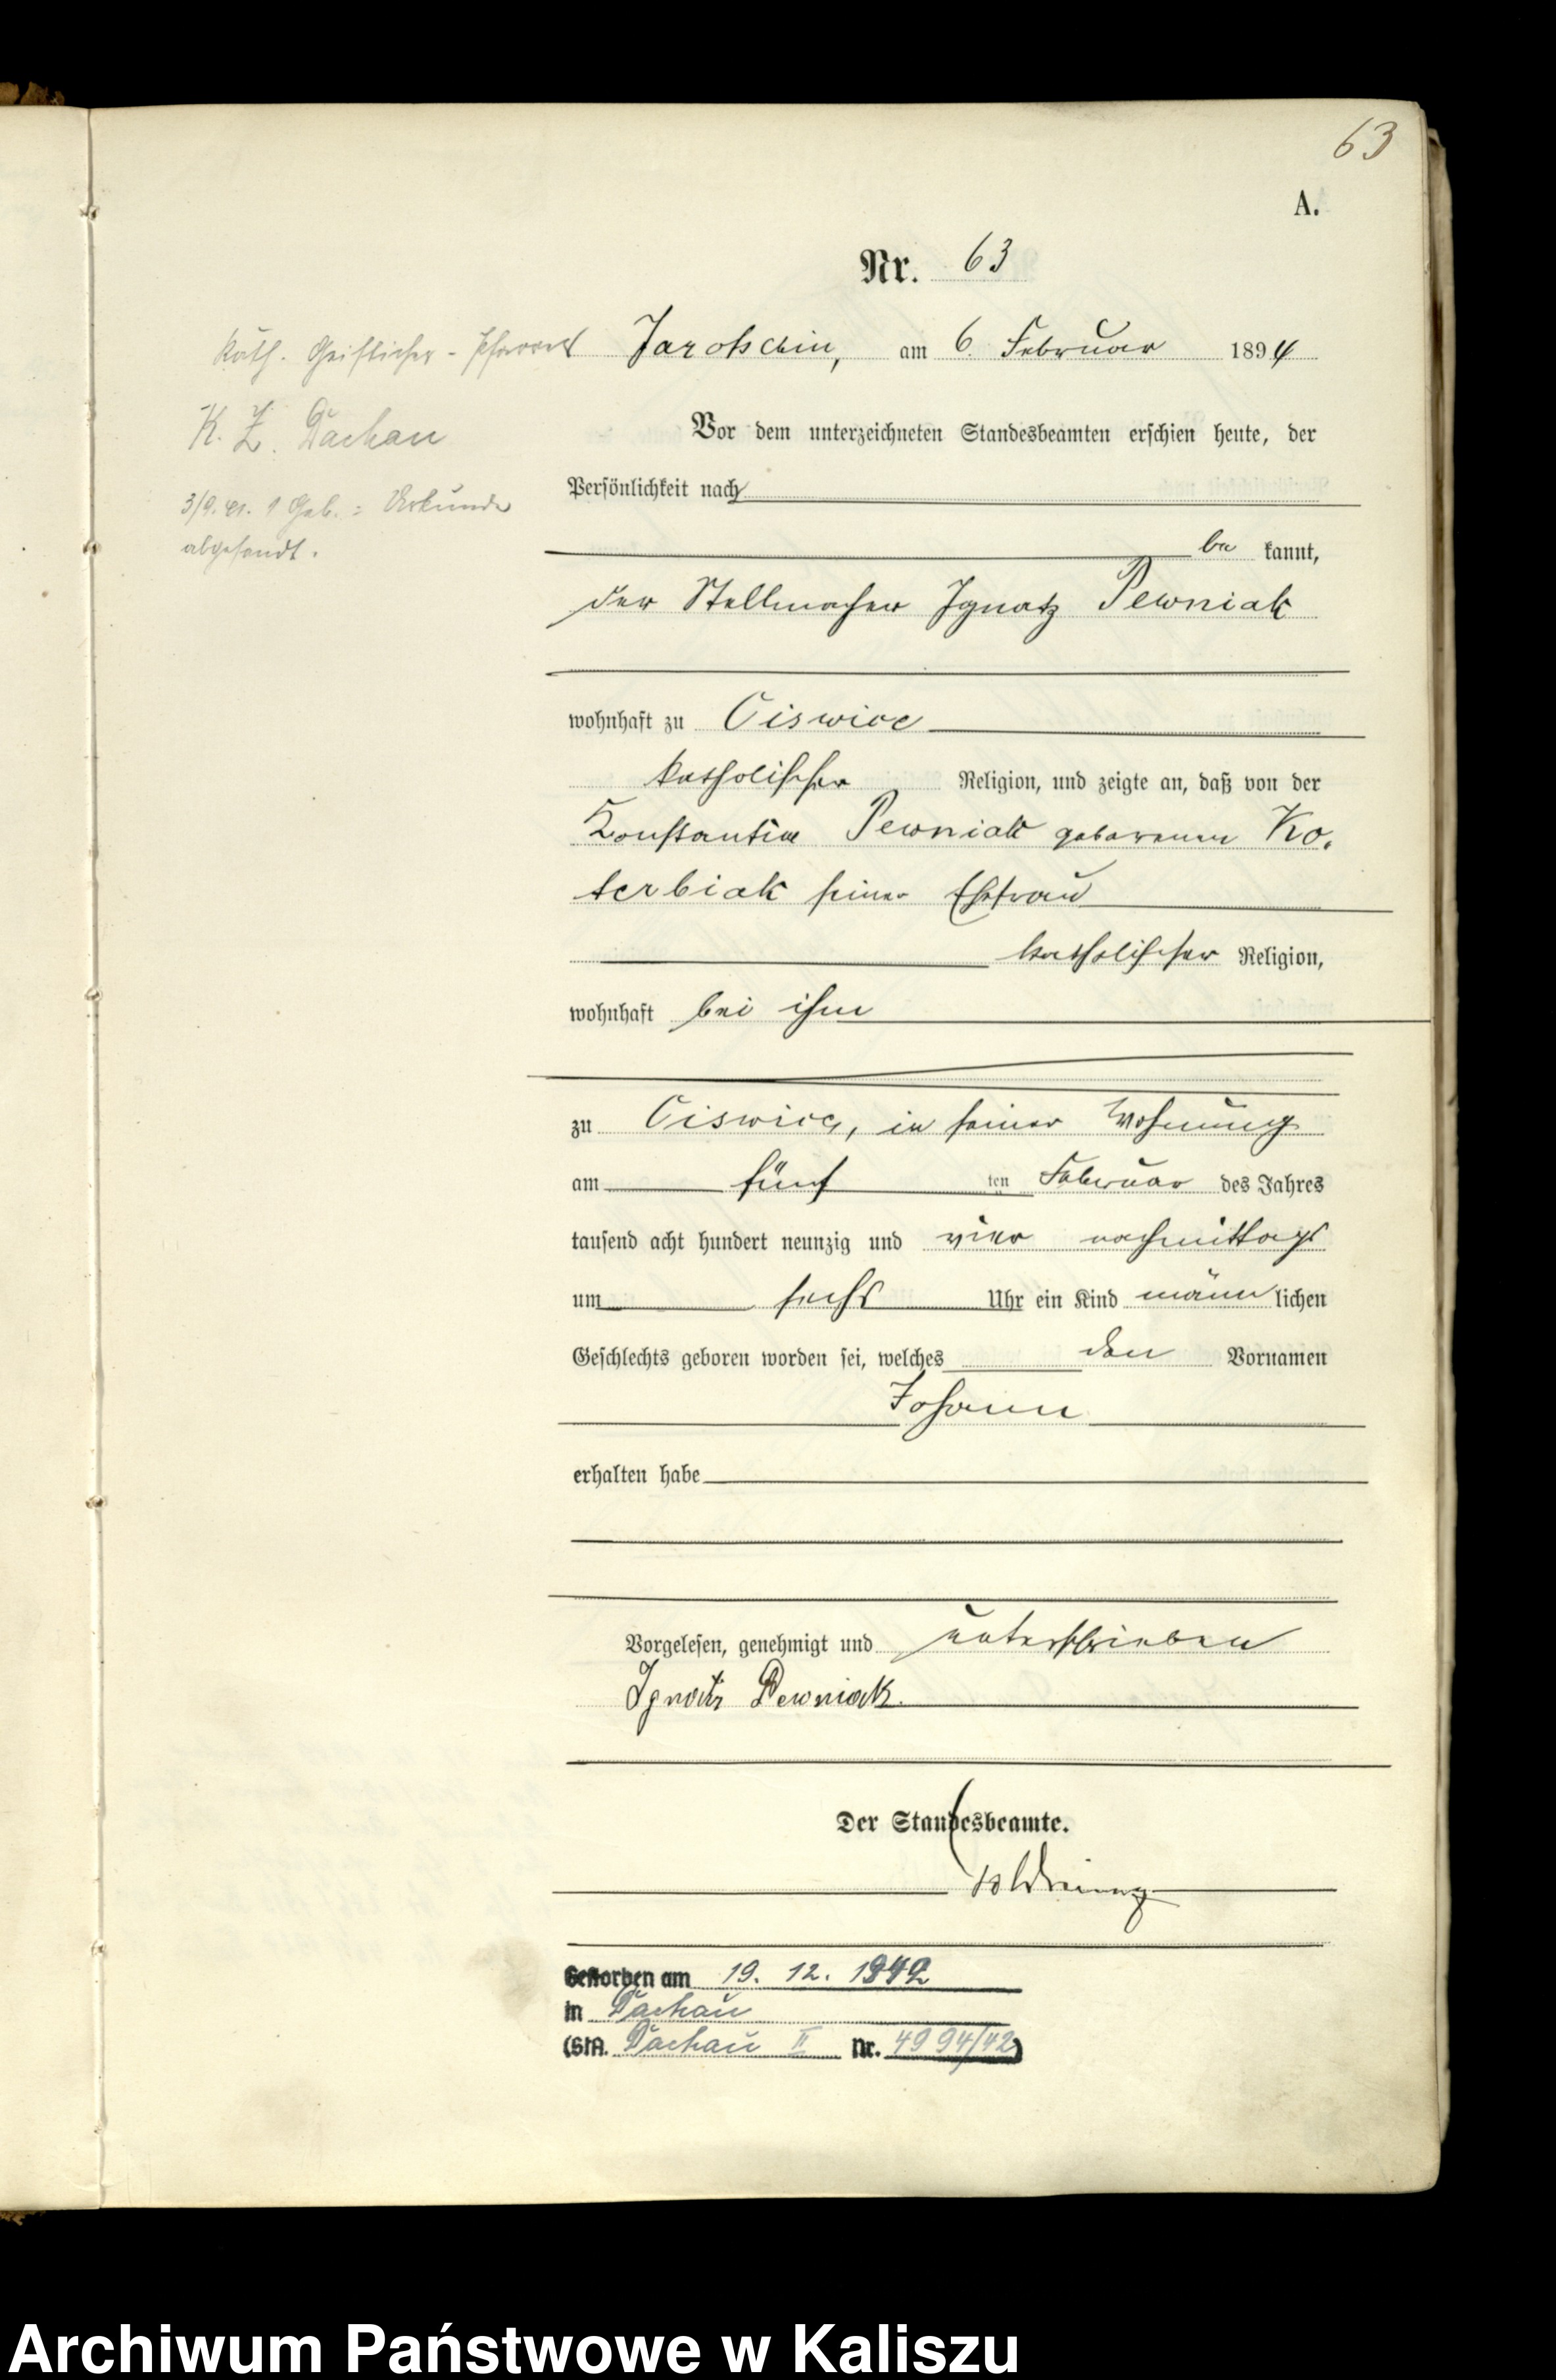 63
A.
Nr. 63
Kath. Geistlicher - Pfarrer
K. Z. Dachau
3/9. 41. 1 Geb. = Urkunde
abgesandt.
Jarotschin, am 6. Februar 1894
Vor dem unterzeichneten Standesbeamten erschien heute, der
Persönlichkeit nach
be kannt,
der Stellmacher Ignatz Pewniak
wohnhaft zu Ciswice
katholischer Religion, und zeigte an, daß von der
Konstantia Pewniak geborenen Ko-
terbiak seiner Ehefrau
katholischer Religion,
wohnhaft bei ihm
zu Ciswice, in seiner Wohnung
am fünf ten Februar des Jahres
tausend acht hundert neunzig und vier nachmittags
um sechs Uhr ein Kind männlichen
Geschlechts geboren worden sei, welches den Vornamen
Johann
erhalten habe
Vorgelesen, genehmigt und unterschrieben
Ignatz Pewniak.
Der Standesbeamte.
Gestorben am 19. 12. 1942
in Dachau
(StA. Dachau II Nr. 4994/42)
Archiwum Państwowe w Kaliszu